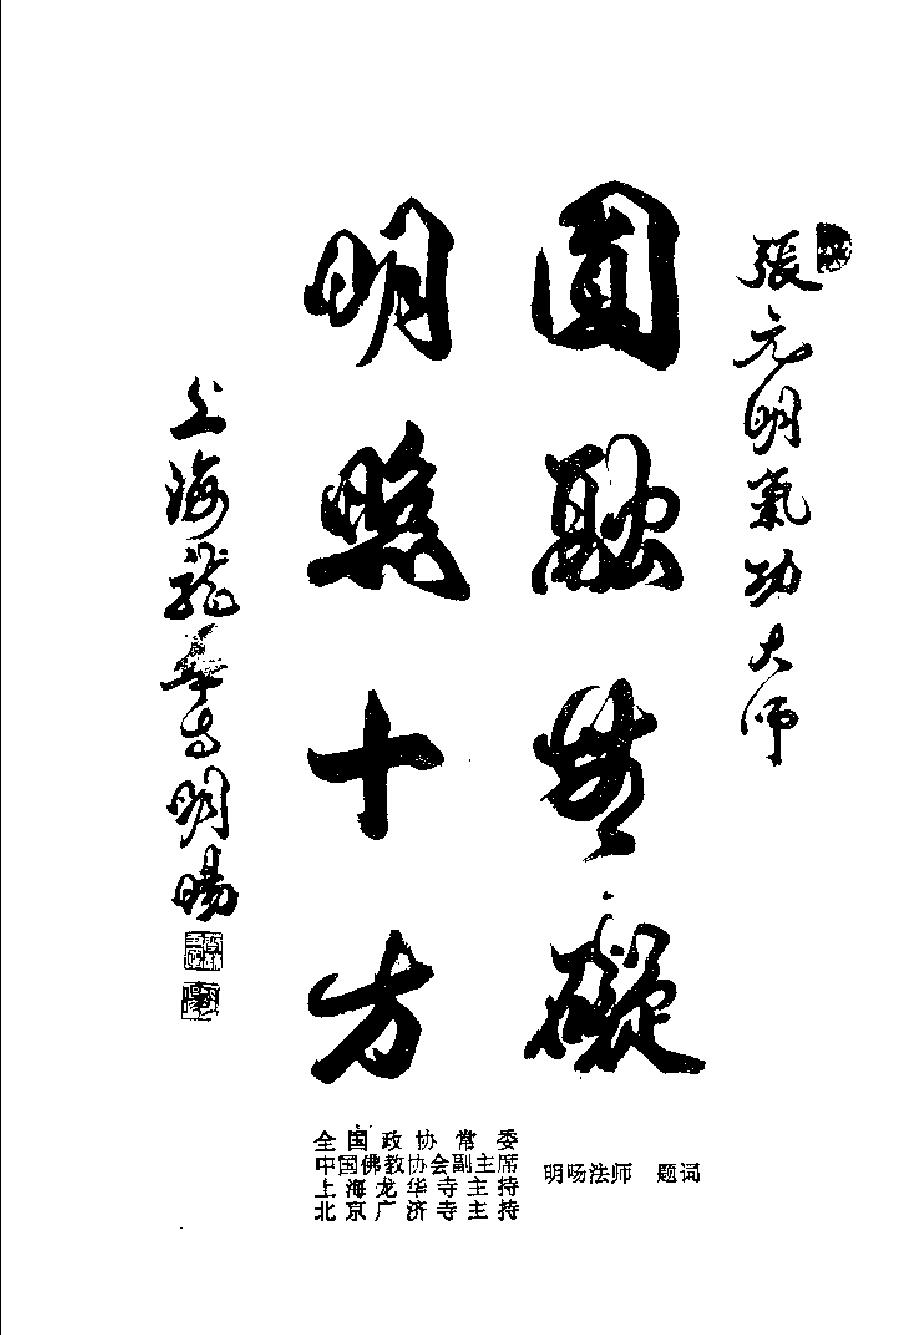 張元明氣功大師
圓融無礙
明照十方
上海龍華寺明暘
全国政协常委
中国佛教协会副主席
上海龙华寺主持
北京广济寺主持
明旸法师 题词